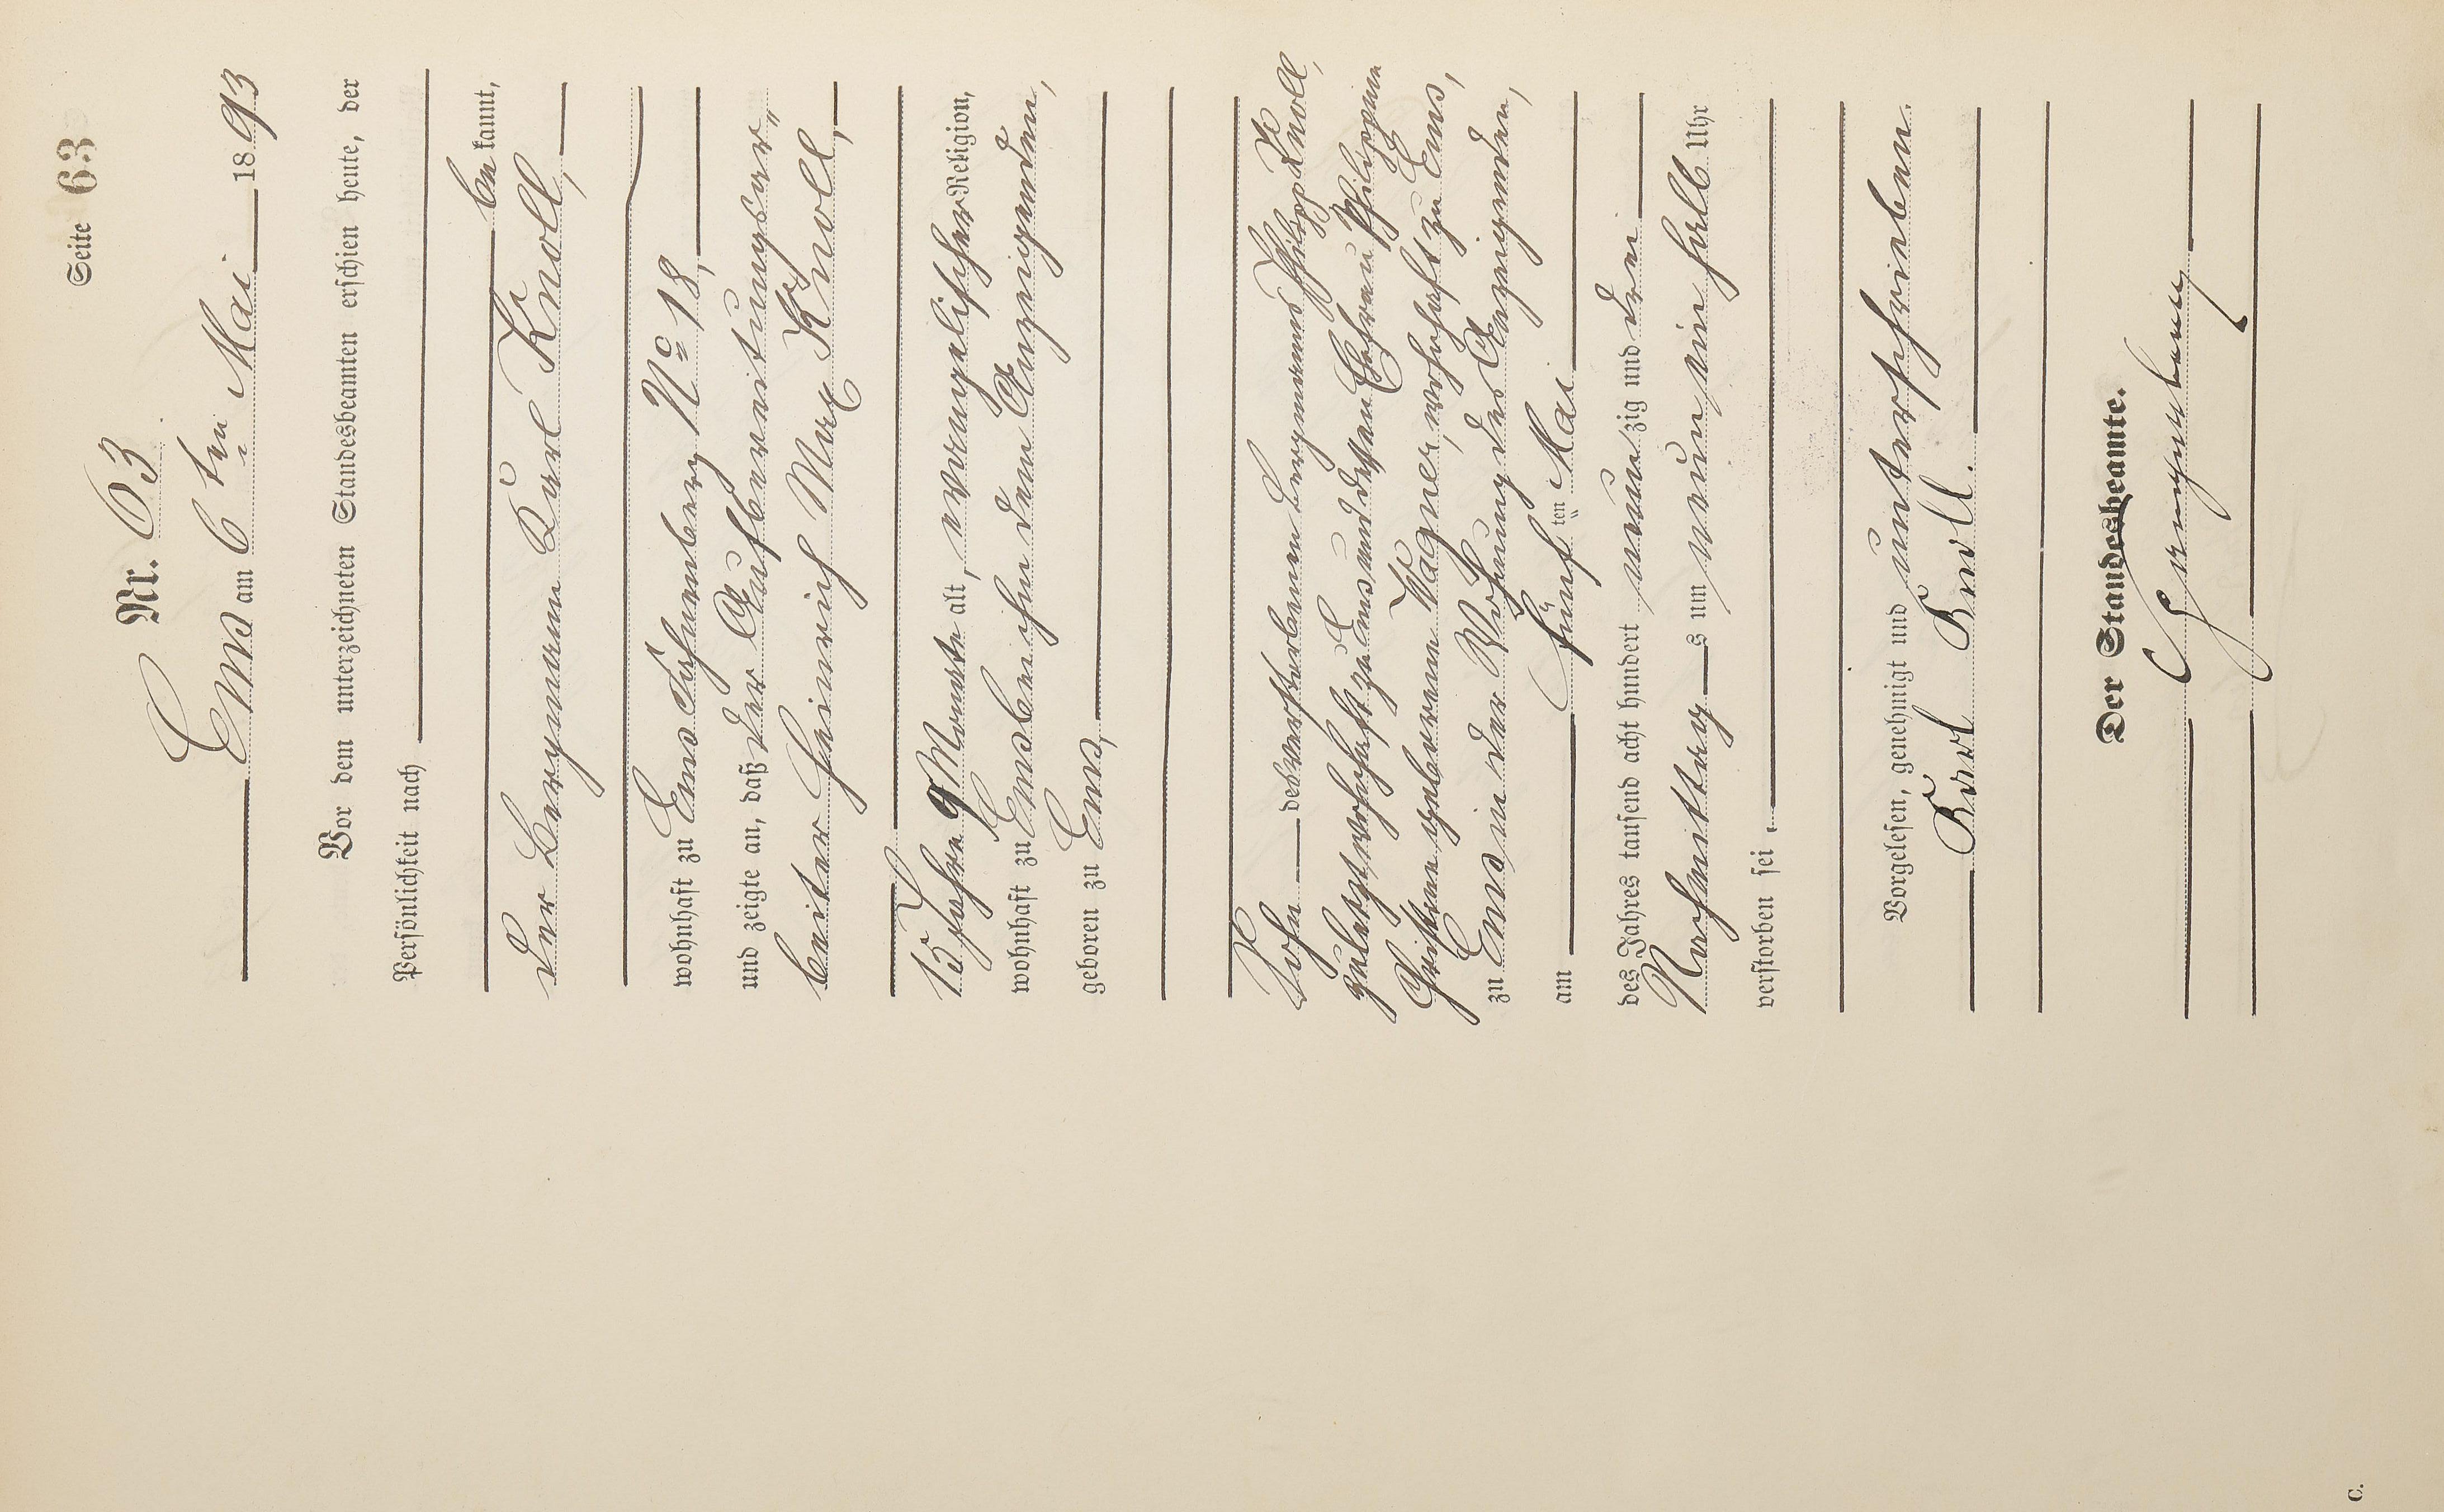 Seite 63
Nr. 63
Ems am 6ten Mai 1893
Vor dem unterzeichneten Standesbeamten erschien heute, der
Persönlichkeit nach
bekannt,
der Bergmann Karl Knoll,
wohnhaft zu Ems No 18,
und zeigte an, daß der Aufbereitungsar„
beiter Heinrich Max Knoll,
15 Jahre 9 Monate alt, evangelischer Religion,
wohnhaft zu Ems bei ihm dem Anzeigenden,
geboren zu Ems,
Sohn des verstorbenen Bergmanns Philipp Knoll,
zuletzt wohnhaft zu Ems und dessen Ehefrau Philippine
Christiane geborene Wagner, wohnhaft zu Ems,
zu Ems in der Wohnung des Anzeigenden,
am fünften Mai
des Jahres tausend acht hundert neunzig und drei
Nachmittags um neun ein halb Uhr
verstorben sei.
Vorgelesen, genehmigt und unterschrieben.
Karl Knoll.
Der Standesbeamte.
C.